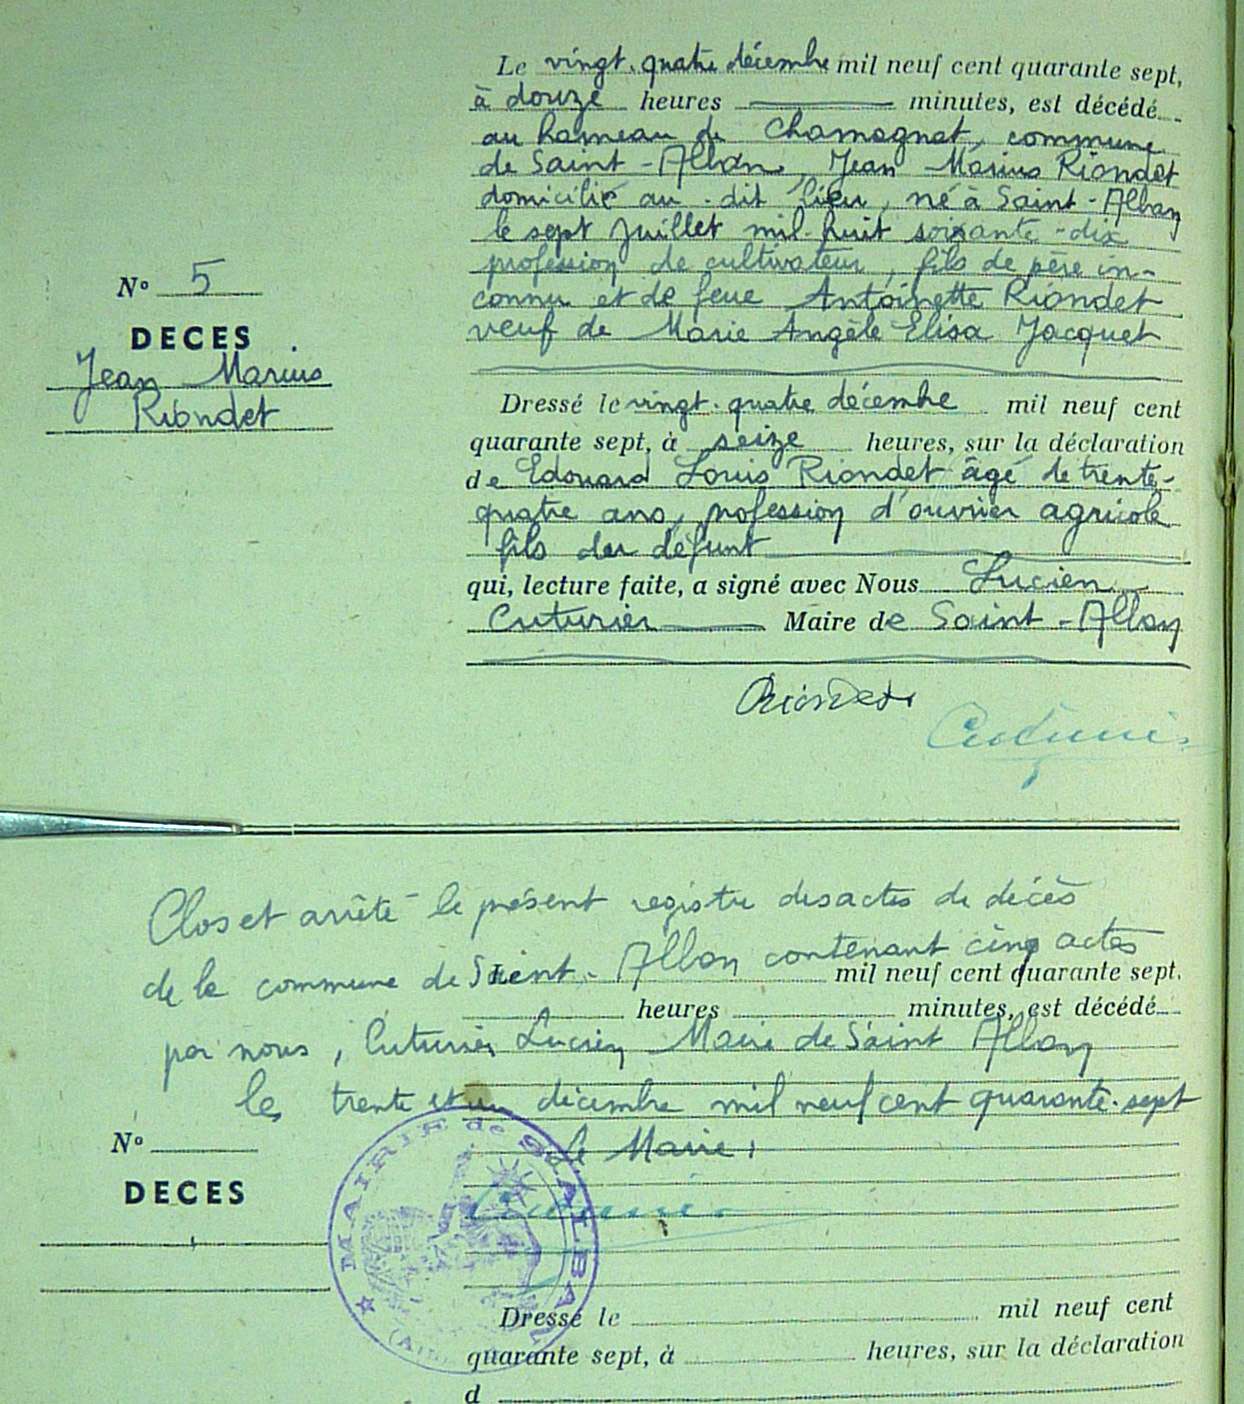 Le vingt-quatre décembre mil neuf cent quarante sept,
à douze heures minutes, est décédé
au hameau de Chamagnat, commune
de Saint-Alban, Jean Marius Riondet
domicilié au-dit lieu, né à Saint-Alban
le sept juillet mil-huit soixante-dix
profession de cultivateur, fils de père in-
connu et de feue Antoinette Riondet
veuf de Marie Angèle Elisa Jacquet
N° 5
DECES
Jean Marius
Riondet
Dressé le vingt-quatre décembre mil neuf cent
quarante sept, à seize heures, sur la déclaration
de Edouard Louis Riondet âgé de trente-
quatre ans, profession d'ouvrier agricole
fils du défunt
qui, lecture faite, a signé avec Nous Lucien
Cuturier Maire de Saint-Alban
Riondet
Cuturier
Clos et arrêté le présent registre des actes de décès
de la commune de Saint-Alban contenant cinq actes
mil neuf cent quarante sept.
heures minutes, est décédé
par nous, Cuturier Lucien Maire de Saint Alban
le trente et un décembre mil neuf cent quarante-sept
le Maire,
Cuturier
N°
DECES
MAIRIE de St ALBAN
(Ain)
Dressé le mil neuf cent
quarante sept, à heures, sur la déclaration
d